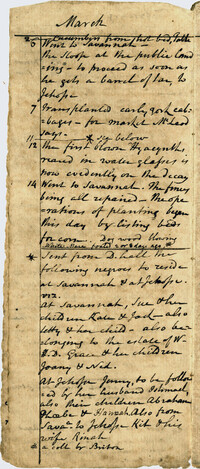 March
Cucumbers from hot bed, table
6 Went to Savannah —
the Sloop at the public land
ing — to proceed as soon as
he gets a barrel of tar, to
Jehossee
7 Transplanted early york cab-
bages — for market McLeod
says —
11 * see below
12 The first blown Hyacynth
reared in water glasses is
now evidently on the decay
14 Went to Savannah. The fences
being all repaired — The ope
rations of planting began
this day by listing beds
for corn. dog wood blowing
* Sent from D. hall the
following negroes to reside
at Savannah & at Jehossee
viz.
At Savannah, Sue & her
children Kate & Jack — also
Letty & her child — also be
longing to the estate of W
B.D. Grace & her children
Joany & Ned.
At Jehossee Jenny, to be follow
ed by her husband
also their children Abraham
Phoebe & Hannah. Also from
Sava.h to Jehossee Kit & his
wife Renah